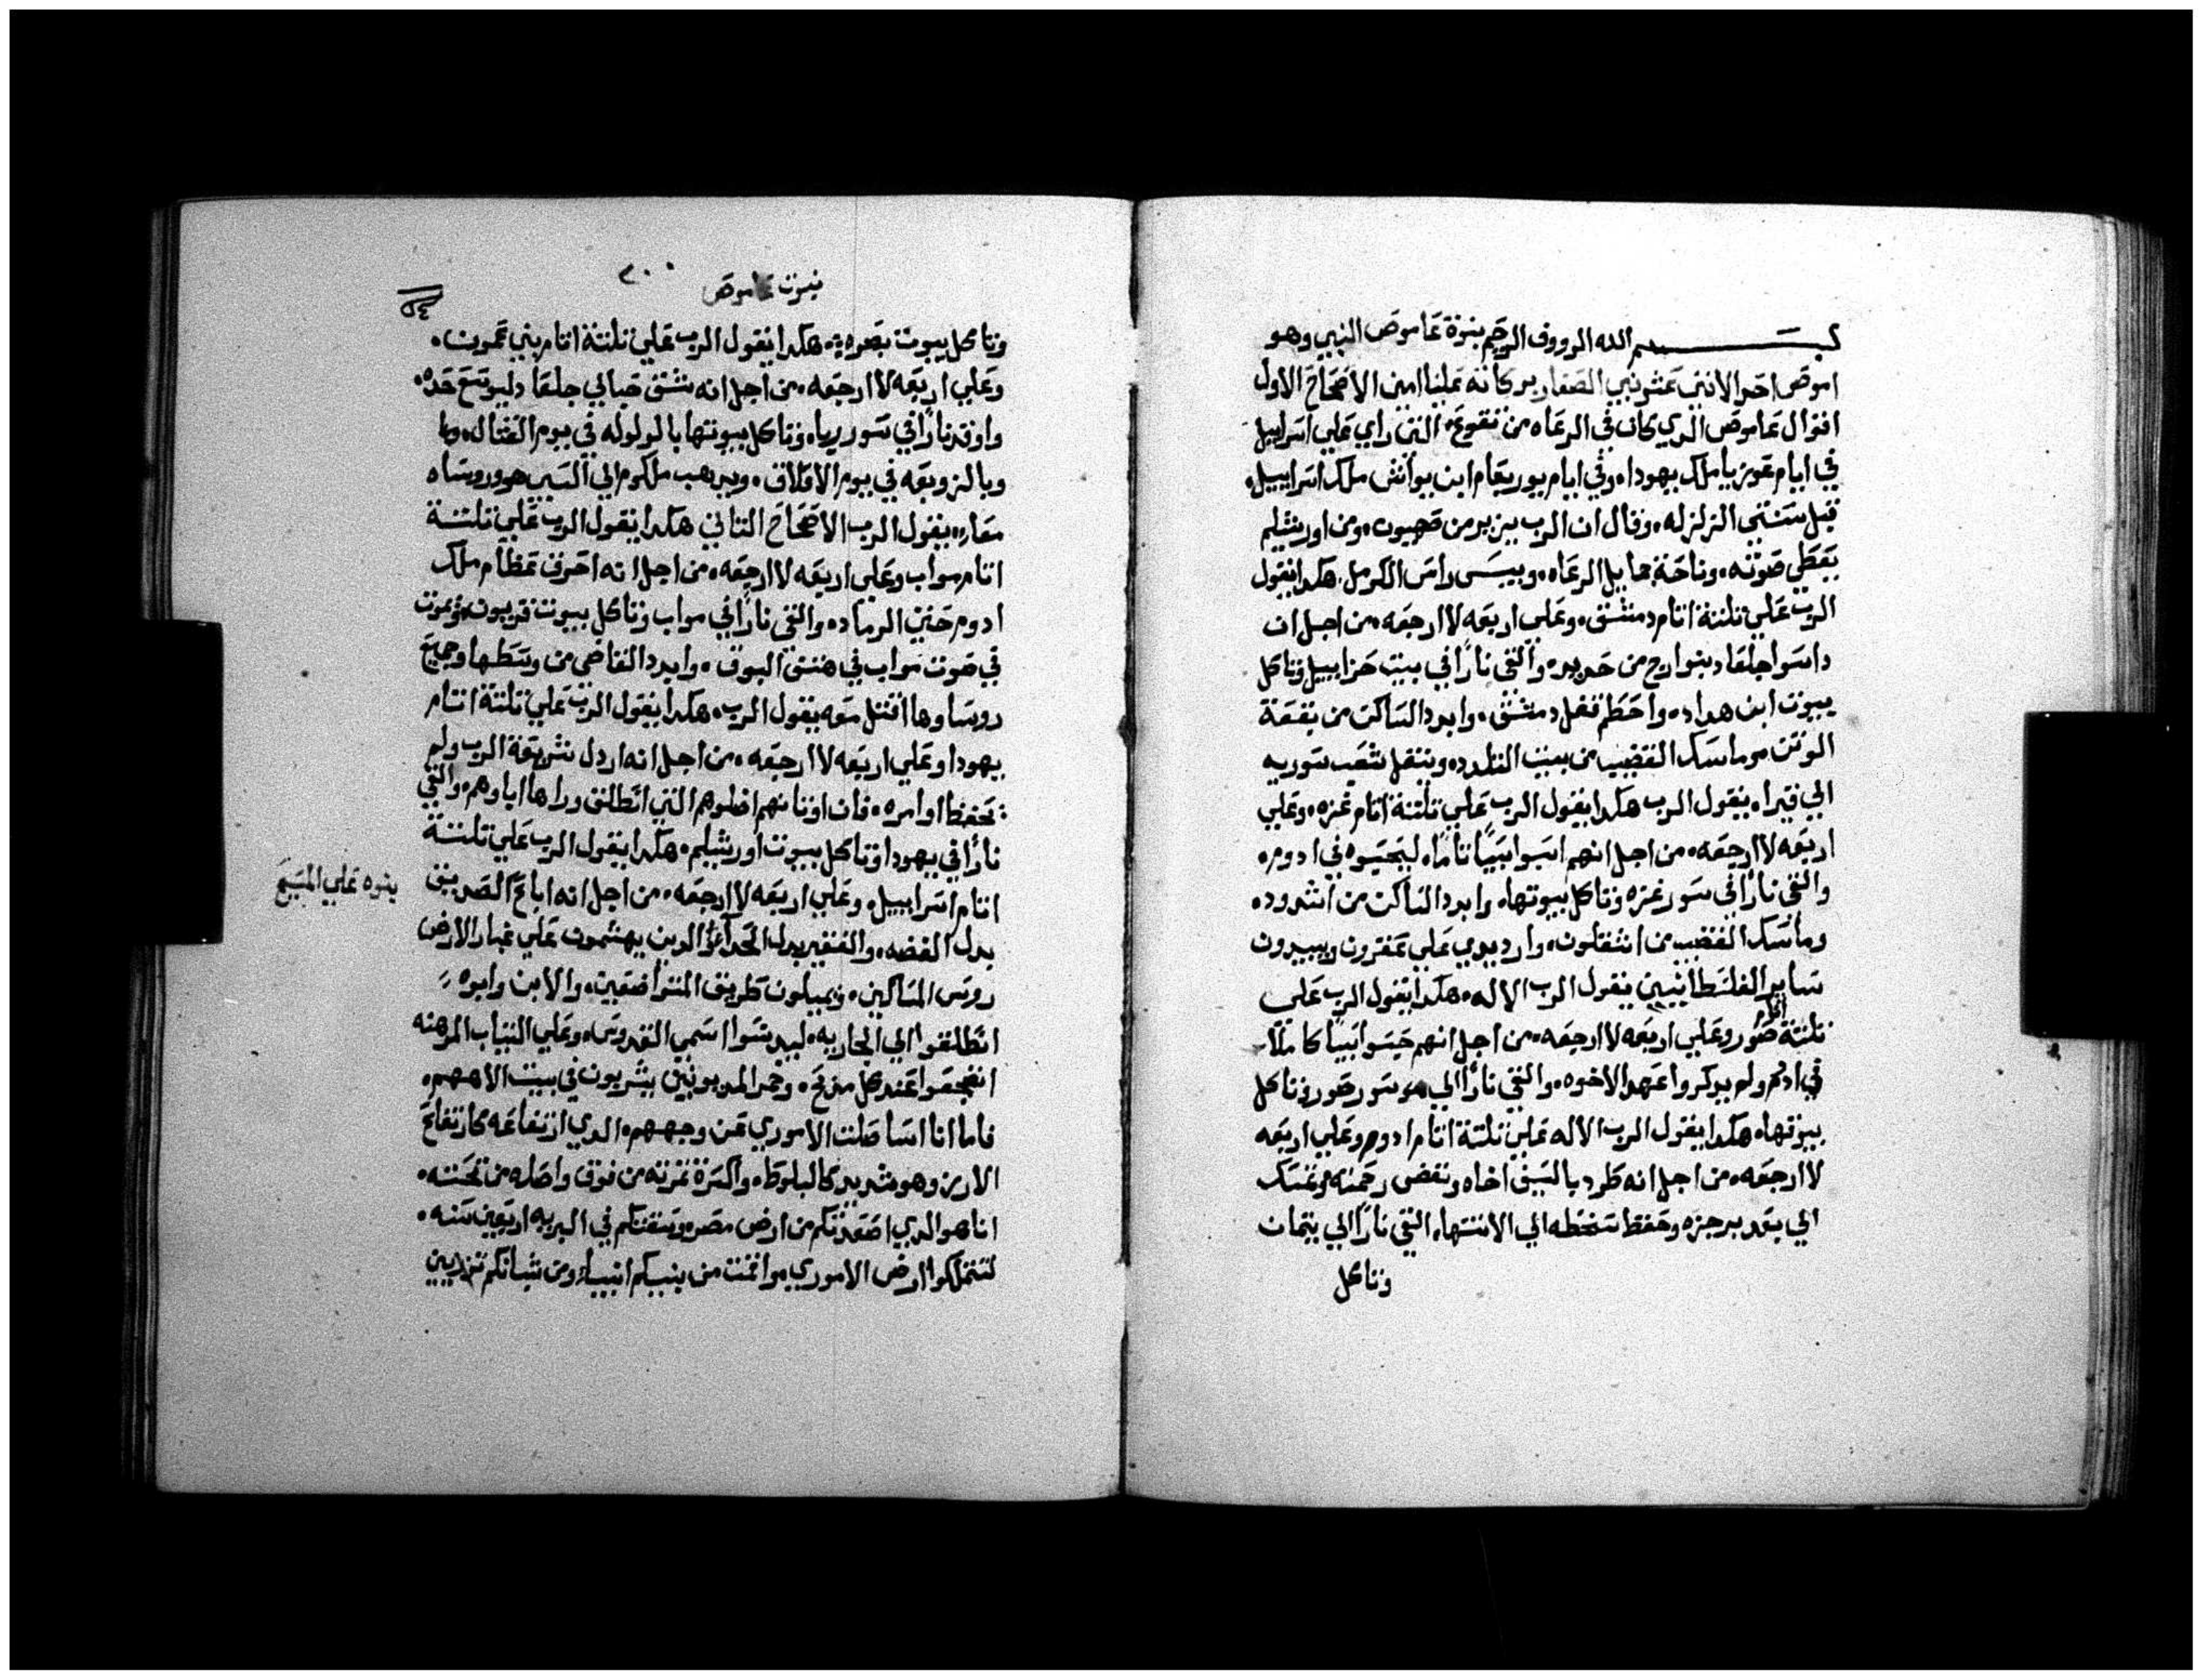 بسم الله الرووف الرحيم بنوة عاموص النبي وهو
اموص احد الاثني عشر نبي الصغار بركاته علينا امين الاصحاح الاول
اقوال عاموص الدي كان في الرعاه من تقوع، التي راي علي اسراييل
في ايام عوزيا ملك يهودا، وفي ايام يوربعام ابن يواش ملك اسراييل،
قبل سنتي الزلزله، وقال ان الرب يزير من صهيون، ومن اورشليم
يعطي صوته، وناحة جمايل الرعاه، ويبس راس الكرمل، هكدا يقول
الرب علي تلتة اتام دمشق، وعلي اربعه لا ارجعه، من اجل ان
داسوا جلعاد بنوارج من حديد، والقي نارًا في بيت حزاييل وتاكل
بيوت ابن هداد، واحطم قفل دمشق، وابيد الساكن من بقعة
الوتن، وماسك القضيب من بيت التلدد، وينتقل شعب سوريه
الي قيرا، يقول الرب هكدا يقول الرب علي تلتة اتام غزه، وعلي
اربعه لا ارجعه، من اجل انهم اسبوا سبيًا تامًا، ليحبسوه في ادوم،
والقي نارًا في سور غزه وتاكل بيوتها، وابيد الساكن من اشدود،
وماسك القضيب من اشقلون، وارد يدي علي عقرون ويبيدون
ساير الفلسطانيين يقول الرب الاله، هكدا يقول الرب علي
تلتة اتام صور وعلي اربعه لا ارجعه، من اجل انهم حبسوا سبيًا كاملًا
في ادوم ولم يدكروا عهد الاخوه، والقي نارًا الي سور صور وتاكل
بيوتها، هكدا يقول الرب الاله علي تلتة اتام ادوم وعلي اربعه
لا ارجعه، من اجل انه طرد بالسيف اخاه ونقض رحمته وتمسك
الي بعد برجزه وحفظ سخطه الي الانتها، القي نارًا الي تيمان
وتاكل
نبوت عاموص
٢٠٠
وتاكل بيوت بصره، هكدا يقول الرب علي تلتة اتام بني عمون،
وعلي اربعه لا ارجعه، من اجل انه شق حبالي جلعاد ليوسع حده،
واوقد نارًا في سور ربا، وتاكل بيوتها بالولوله في يوم القتال،
وبالزوبعه في يوم الاقلاق، ويدهب ملكوم الي السبي هو وروساه
معًا، يقول الرب الاصحاح التاني هكدا يقول الرب علي تلتة
اتام مواب وعلي اربعه لا ارجعه، من اجل انه احرق عظام ملك
ادوم حتي الرماد، والقي نارًا في مواب وتاكل بيوت قريوت، ويموت
في صوت مواب في هتف البوق، وابيد القاضي من وسطها وجميع
روساوها اقتل معه يقول الرب، هكدا يقول الرب علي تلتة اتام
يهودا وعلي اربعه لا ارجعه، من اجل انه اردل شريعة الرب ولم
يحفظ اوامره، فان اوتانهم اضلوهم التي انطلق وراها اباوهم، والقي
نارًا في يهودا وتاكل بيوت اورشليم، هكدا يقول الرب علي تلتة
اتام اسراييل، وعلي اربعه لا ارجعه، من اجل انه اباع الصديق
بدل الفضه، والفقير بدل الحدا، الدين يهشمون علي غبار الارض
روس المساكين، ويميلون طريق المتواضعين، والابن وابوه
انطلقوا الي الجاريه، ليدنسوا اسمي القدوس، وعلي التياب المرهنه
انضجعوا عند كل مدبح، وخمر المديونين يشربون في بيت الاههم،
فاما انا استاصلت الاموري عن وجههم، الدي ارتفاعه كارتفاع
الارز، وهو شديد كالبلوط، واكسرة تمرته من فوق واصله من تحته،
انا هو الدي اصعدتكم من ارض مصر، وسقتكم في البريه اربعين سنه،
لتتملكوا ارض الاموري، واقمت من بنيكم انبياء ومن شبانكم ندريين
بنوه علي المسيح